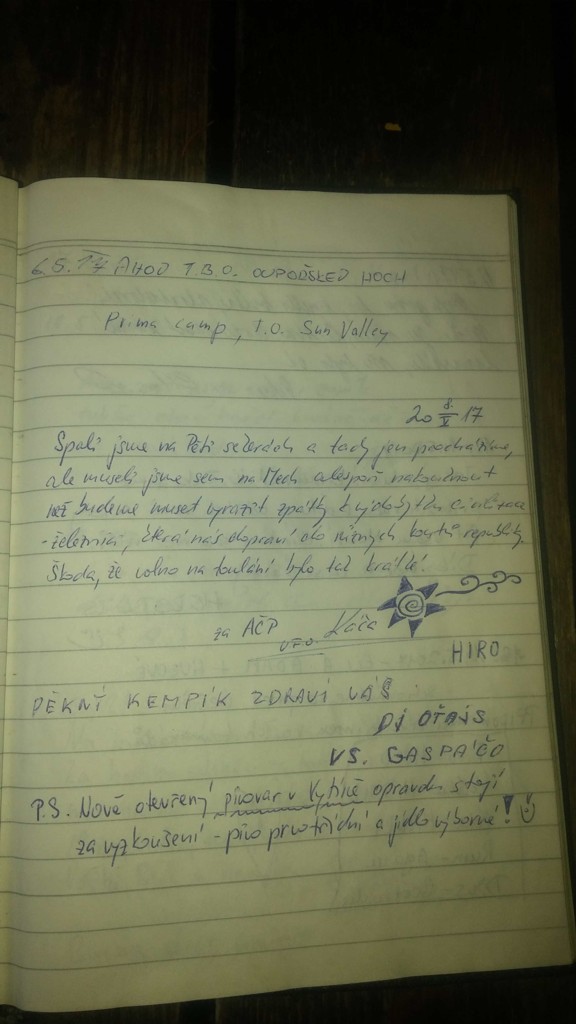 6.5.17 AHOJ T.B.O. HOCH
Prima camp, T.O. Sun Valley
20 8./V 17
Spali jsme na Pěti sekerách a tady jen procházíme,
ale museli jsme sem na Mech alespoň nakouknout
než budeme muset vyrazit zpátky k výdobytku civilizace
- železnici, která nás dopraví do různých koutů republiky.
Škoda, že volno na toulání bylo tak krátké!
za AČP UFO Káča
HIRO
PĚKNÝ KEMPÍK ZDRAVÍ VÁS
DJ OTAJS
VS. GASPAČO
P.S. Nově otevřený pivovar v Kytíně opravdu stojí
za vyzkoušení - pivo prvotřídní a jídlo výborné! :)